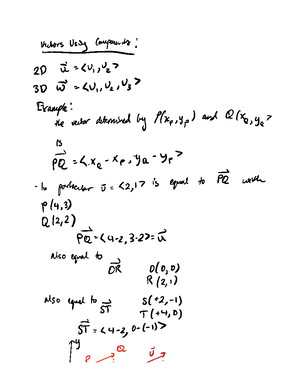 Vectors Using Components:
2D u⃗ = <u₁, u₂>
3D w⃗ = <u₁, u₂, u₃>
Example:
the vector determined by P(xₚ, yₚ) and Q(x_Q, y_Q>
is
PQ⃗ = <x_Q - xₚ, y_Q - yₚ>
- In particular u⃗ = <2,1> is equal to PQ⃗ with
P(4,3)
Q(2,2)
PQ⃗ = <4-2, 3-2> = u⃗
Also equal to
OR⃗ O(0,0)
R(2,1)
Also equal to ST⃗ S(+2,-1)
T(+4,0)
ST⃗ = <4-2, 0-(-1)>
y
P Q U⃗